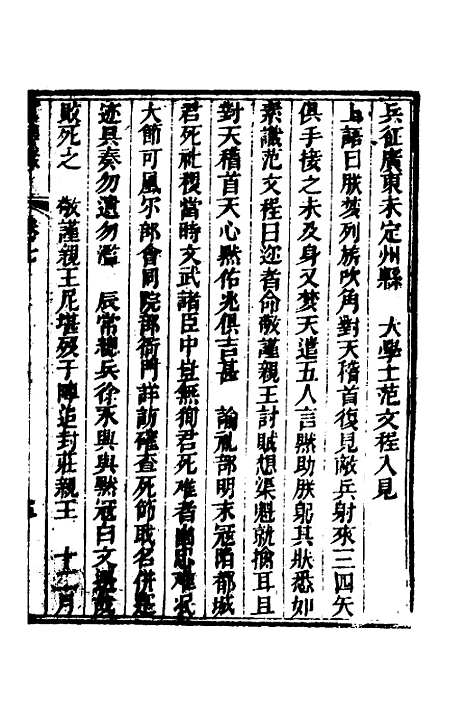 兵征廣東未定州縣　大學士范文程入見
上語曰朕焚列族吹角對天稽首復見敵兵射來三四矢
俱手接之未及身又焚天遣五人言黙助朕躬其狀悉如
素識范文程曰迩者命敬謹親王討賊想渠魁就擒耳且
對天稽首天心黙佑兆俱吉甚　諭禮部明末冠陷都城
君死社稷當時文武諸臣中豈無徇君死難者幽忠難泯
大節可風尓部會同院部衙門詳訪確查死節職名併起
迹具奏勿遺勿濫　辰常總兵徐永與與黙冠白文選戰
敗死之　敬謹親王尼堪歿于陣追封莊親王　十一月